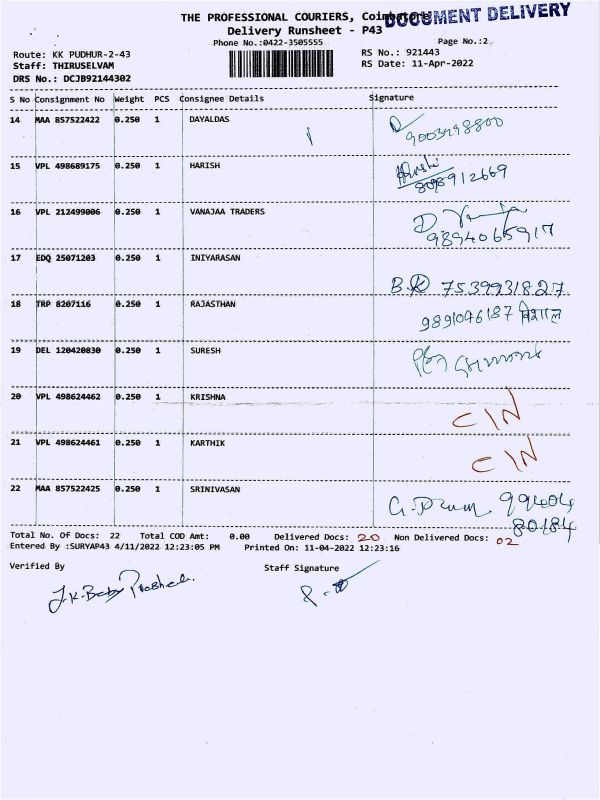 THE PROFESSIONAL COURIERS, Coimbatore
DOCUMENT DELIVERY
Delivery Runsheet - P43
Phone No.:0422-3505555
Page No.:2
Route: KK PUDHUR-2-43
RS No.: 921443
Staff: THIRUSELVAM
RS Date: 11-Apr-2022
DRS No.: DCJB92144302
S No Consignment No Weight PCS Consignee Details Signature
14 MAA 857522422 0.250 1 DAYALDAS
15 VPL 498689175 0.250 1 HARISH
8098912669
16 VPL 212499006 0.250 1 VANAJAA TRADERS
9894065917
17 EDQ 25071203 0.250 1 INIYARASAN
B.K 7539931827
18 TRP 8207116 0.250 1 RAJASTHAN
9891046187 विशाल
19 DEL 120420830 0.250 1 SURESH
20 VPL 498624462 0.250 1 KRISHNA
C/N
21 VPL 498624461 0.250 1 KARTHIK
C/N
22 MAA 857522425 0.250 1 SRINIVASAN
99404
80184
Total No. Of Docs: 22 Total COD Amt: 0.00 Delivered Docs: 20 Non Delivered Docs: 02
Entered By :SURYAP43 4/11/2022 12:23:05 PM Printed On: 11-04-2022 12:23:16
Verified By Staff Signature
J.K. Baby Prashad.